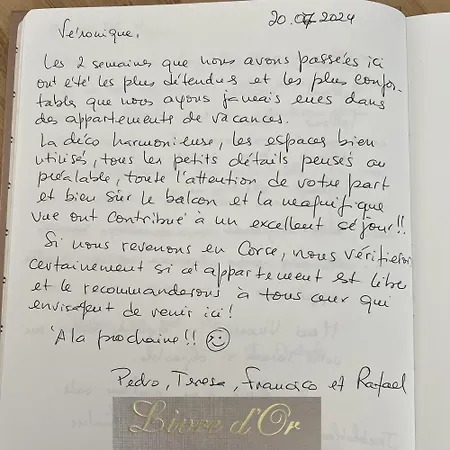 20.07.2024
Véronique,
Les 2 semaines que nous avons passées ici
ont été les plus détendus et les plus confor-
tables que nous ayons jamais eues dans
des appartements de vacances.
La déco harmonieuse, les espaces bien
utilisés, tous les petits détails pensés au
préalable, toute l'attention de votre part
et bien sûr le balcon et la magnifique
vue ont contribué à un excellent séjour!!
Si nous revenons en Corse, nous vérifieron
certainement si cet appartement est libre
et le recommanderons à tous ceux qui
envisagent de venir ici!
'A la prochaine!! ☺
Pedro, Teresa, Francisco et Rafael
Livre d'Or